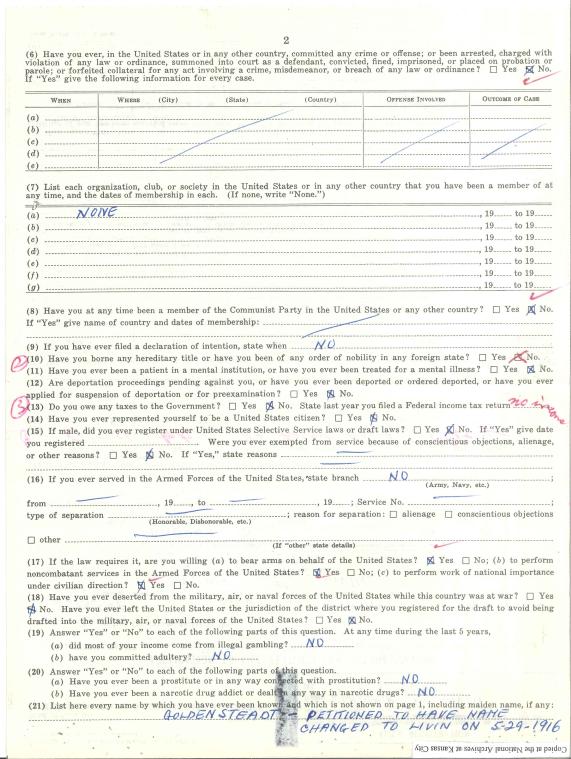 2
(6) Have you ever, in the United States or in any other country, committed any crime or offense; or been arrested, charged with
violation of any law or ordinance, summoned into court as a defendant, convicted, fined, imprisoned, or placed on probation or
parole; or forfeited collateral for any act involving a crime, misdemeanor, or breach of any law or ordinance? ☐ Yes ☒ No.
If "Yes" give the following information for every case.
WHEN WHERE (City) (State) (Country) OFFENSE INVOLVED OUTCOME OF CASE
(a)
(b)
(c)
(d)
(e)
(7) List each organization, club, or society in the United States or in any other country that you have been a member of at
any time, and the dates of membership in each. (If none, write "None.")
(a) NONE , 19 to 19
(b) , 19 to 19
(c) , 19 to 19
(d) , 19 to 19
(e) , 19 to 19
(f) , 19 to 19
(g) , 19 to 19
(8) Have you at any time been a member of the Communist Party in the United States or any other country? ☐ Yes ☒ No.
If "Yes" give name of country and dates of membership:
(9) If you have ever filed a declaration of intention, state when NO
(10) Have you borne any hereditary title or have you been of any order of nobility in any foreign state? ☐ Yes ☒ No.
(11) Have you ever been a patient in a mental institution, or have you ever been treated for a mental illness? ☐ Yes ☒ No.
(12) Are deportation proceedings pending against you, or have you ever been deported or ordered deported, or have you ever
applied for suspension of deportation or for preexamination? ☐ Yes ☒ No.
(13) Do you owe any taxes to the Government? ☐ Yes ☒ No. State last year you filed a Federal income tax return no income
(14) Have you ever represented yourself to be a United States citizen? ☐ Yes ☒ No.
(15) If male, did you ever register under United States Selective Service laws or draft laws? ☐ Yes ☒ No. If "Yes" give date
you registered Were you ever exempted from service because of conscientious objections, alienage,
or other reasons? ☐ Yes ☒ No. If "Yes," state reasons
(16) If you ever served in the Armed Forces of the United States, state branch NO ;
(Army, Navy, etc.)
from , 19 , to , 19 ; Service No. ;
type of separation ; reason for separation: ☐ alienage ☐ conscientious objections
(Honorable, Dishonorable, etc.)
☐ other
(If "other" state details)
(17) If the law requires it, are you willing (a) to bear arms on behalf of the United States? ☒ Yes ☐ No; (b) to perform
noncombatant services in the Armed Forces of the United States? ☒ Yes ☐ No; (c) to perform work of national importance
under civilian direction? ☒ Yes ☐ No.
(18) Have you ever deserted from the military, air, or naval forces of the United States while this country was at war? ☐ Yes
☒ No. Have you ever left the United States or the jurisdiction of the district where you registered for the draft to avoid being
drafted into the military, air, or naval forces of the United States? ☐ Yes ☒ No.
(19) Answer "Yes" or "No" to each of the following parts of this question. At any time during the last 5 years,
(a) did most of your income come from illegal gambling? NO
(b) have you committed adultery? NO
(20) Answer "Yes" or "No" to each of the following parts of this question.
(a) Have you ever been a prostitute or in any way connected with prostitution? NO
(b) Have you ever been a narcotic drug addict or dealt in any way in narcotic drugs? NO
(21) List here every name by which you have ever been known and which is not shown on page 1, including maiden name, if any:
GOLDENSTEADT - PETITIONED TO HAVE NAME
CHANGED TO LIVIN ON 5-29-1916
Copied at the National Archives at Kansas City